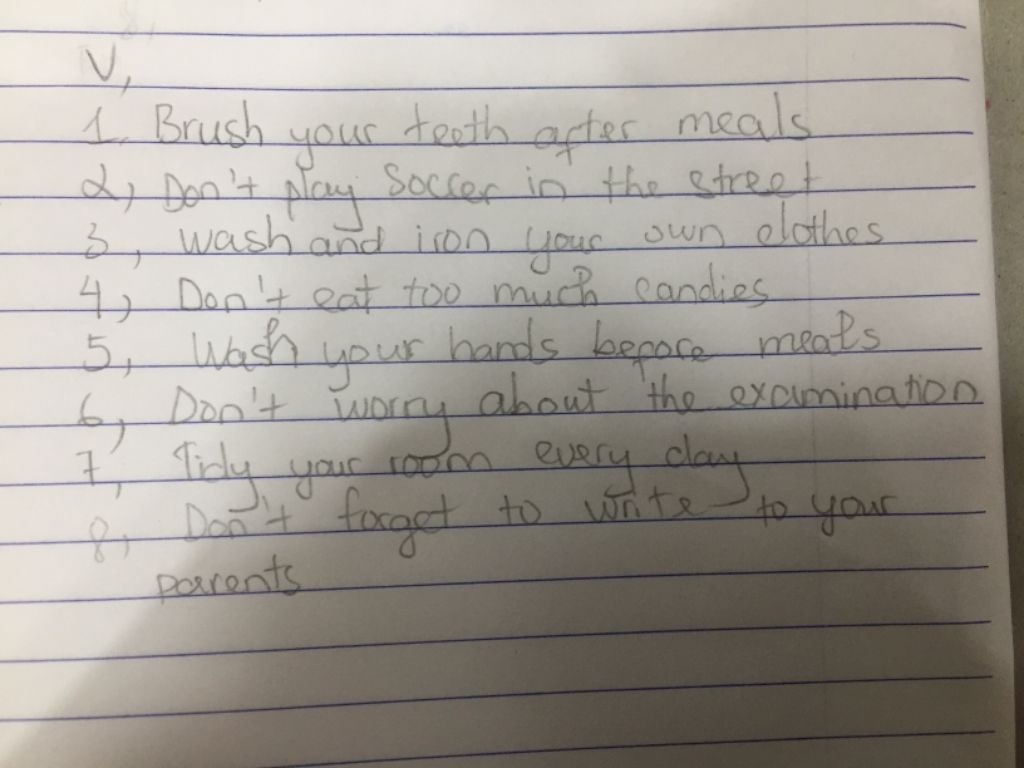 V,
1. Brush your teeth after meals
2, Don't play soccer in the street
3, wash and iron your own clothes
4, Don't eat too much candies
5, Wash your hands before meals
6, Don't worry about the examination
7, Tidy your room every day
8, Don't forget to write to your
parents